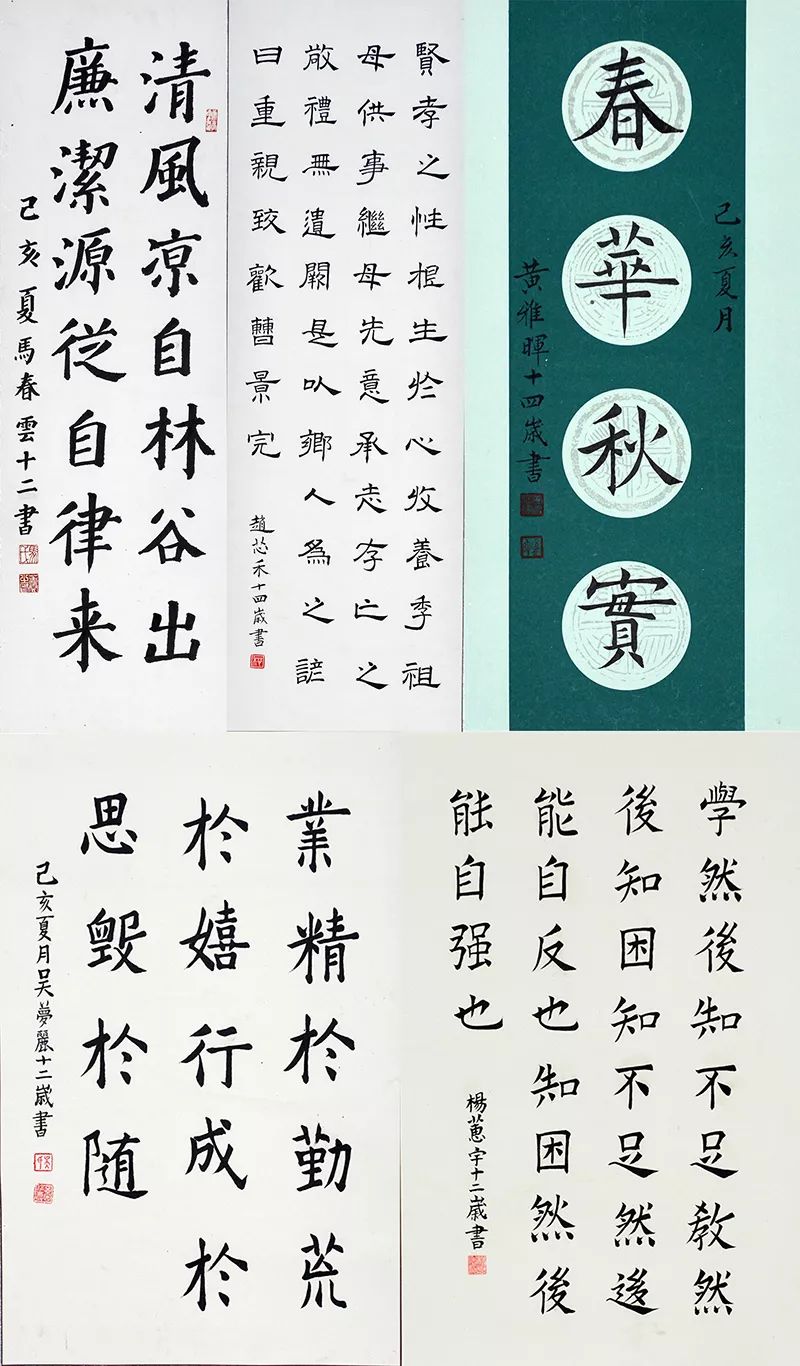 清風凉自林谷出
廉潔源従自律来
己亥夏馬春雲十二書
賢孝之性根生於心收養季祖
母供事繼母先意承志存亡之
敬禮無遺闕是以鄉人為之諺
曰重親致歡曹景完
趙芯禾十四歲書
己亥夏月
春華秋實
黃雅暉十四歲書
業精於勤荒
於嬉行成於
思毀於随
己亥夏月吴夢麗十二歲書
學然後知不足教然
後知困知不足然後
能自反也知困然後
能自强也
楊蕙宇十二歲書